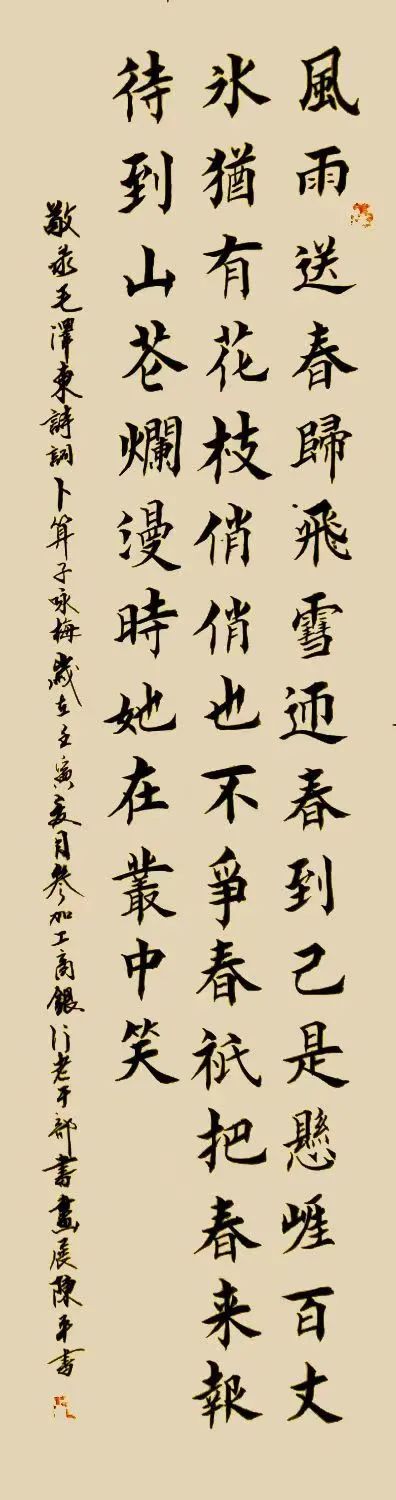 風雨送春歸飛雪迎春到已是懸崖百丈
氷猶有花枝俏俏也不爭春祇把春来報
待到山花爛漫時她在叢中笑
敬录毛澤東詩詞卜算子咏梅歲在壬寅夏月參加工商銀行老干部書畫展陳平書